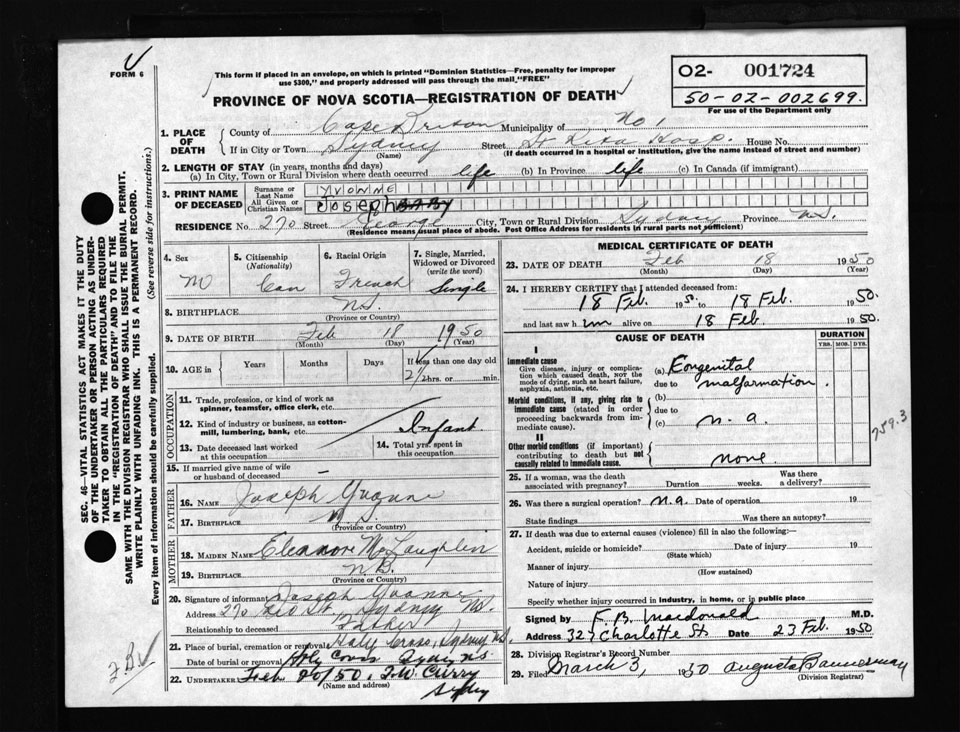 FORM 6
This form if placed in an envelope, on which is printed "Dominion Statistics—Free, penalty for improper
use $300," and properly addressed will pass through the mail "FREE"
PROVINCE OF NOVA SCOTIA—REGISTRATION OF DEATH
O2- 001724
50-02-002699.
For use of the Department only
SEC. 46—VITAL STATISTICS ACT MAKES IT THE DUTY
OF THE UNDERTAKER OR PERSON ACTING AS UNDER-
TAKER TO OBTAIN ALL THE PARTICULARS REQUIRED
IN THE "REGISTRATION OF DEATH" AND TO FILE THE
SAME WITH THE DIVISION REGISTRAR WHO SHALL ISSUE THE BURIAL PERMIT.
WRITE PLAINLY WITH UNFADING INK. THIS IS A PERMANENT RECORD.
Every item of information should be carefully supplied. (See reverse side for instructions.)
1. PLACE OF DEATH
County of Cape Breton Municipality of No 1
If in City or Town Sydney Street St Rita Hosp. House No.
(Name) (If death occurred in a hospital or institution, give the name instead of street and number)
2. LENGTH OF STAY (in years, months and days)
(a) In City, Town or Rural Division where death occurred life (b) In Province life (c) In Canada (if immigrant)
3. PRINT NAME OF DECEASED
Surname or Last Name YVONNE
All Given or Christian Names JOSEPH BABY
RESIDENCE No 270 street George City, Town or Rural Division Sydney Province N.S.
(Residence means usual place of abode. Post Office Address for residents in rural parts not sufficient)
4. Sex M
5. Citizenship (Nationality) Can
6. Racial Origin French
7. Single, Married, Widowed or Divorced (write the word) Single
8. BIRTHPLACE N.S.
(Province or Country)
9. DATE OF BIRTH Feb 18 1950
(Month) (Day) (Year)
10. AGE in Years Months Days If less than one day old
2½ hrs. or min.
OCCUPATION
11. Trade, profession, or kind of work as
spinner, teamster, office clerk, etc.
12. Kind of industry or business, as cotton-
mill, lumbering, bank, etc. Infant
13. Date deceased last worked
at this occupation
14. Total yrs. spent in
this occupation
15. If married give name of wife
or husband of deceased –
FATHER
16. NAME Joseph Yvonne
17. BIRTHPLACE N.S.
(Province or Country)
MOTHER
18. MAIDEN NAME Eleanor McLaughlin
19. BIRTHPLACE N.B.
(Province or Country)
20. Signature of informant Joseph Yvonne
Address 270 Geo St. Sydney NS.
Relationship to deceased Father
21. Place of burial, cremation or removal Holy Cross, Sydney N.S.
Date of burial or removal Holy Cross Sydney N.S.
22. UNDERTAKER Feb 20/50. F.W. Curry
(Name and address) Sydney
MEDICAL CERTIFICATE OF DEATH
23. DATE OF DEATH Feb 18 1950
(Month) (Day) (Year)
24. I HEREBY CERTIFY that I attended deceased from:
18 Feb. 1950 to 18 Feb. 1950.
and last saw him alive on 18 Feb. 1950.
CAUSE OF DEATH
DURATION
YRS. MOS. DYS.
I
Immediate cause
Give disease, injury or complica-
tion which caused death, NOT the
mode of dying, such as heart failure,
asphyxia, asthenia, etc.
(a) Congenital
due to malformation.
Morbid conditions, if any, giving rise to
immediate cause (stated in order
proceeding backwards from im-
mediate cause).
(b)
due to
(c) n.a.
II
Other morbid conditions (if important)
contributing to death but not
causally related to immediate cause.
none
759.3
25. If a woman, was the death
associated with pregnancy? Duration weeks. Was there
a delivery?
26. Was there a surgical operation? n.a. Date of operation 19
State findings Was there an autopsy?
27. If death was due to external causes (violence) fill in also the following:
Accident, suicide or homicide? Date of injury 19
(State which)
Manner of injury
(How sustained)
Nature of injury
Specify whether injury occurred in industry, in home, or in public place
Signed by F. B. Macdonald M.D.
Address 327 Charlotte St Date 23 Feb. 1950
28. Division Registrar's Record Number
29. Filed March 3, 1950 Augusta Bannerman
(Division Registrar)